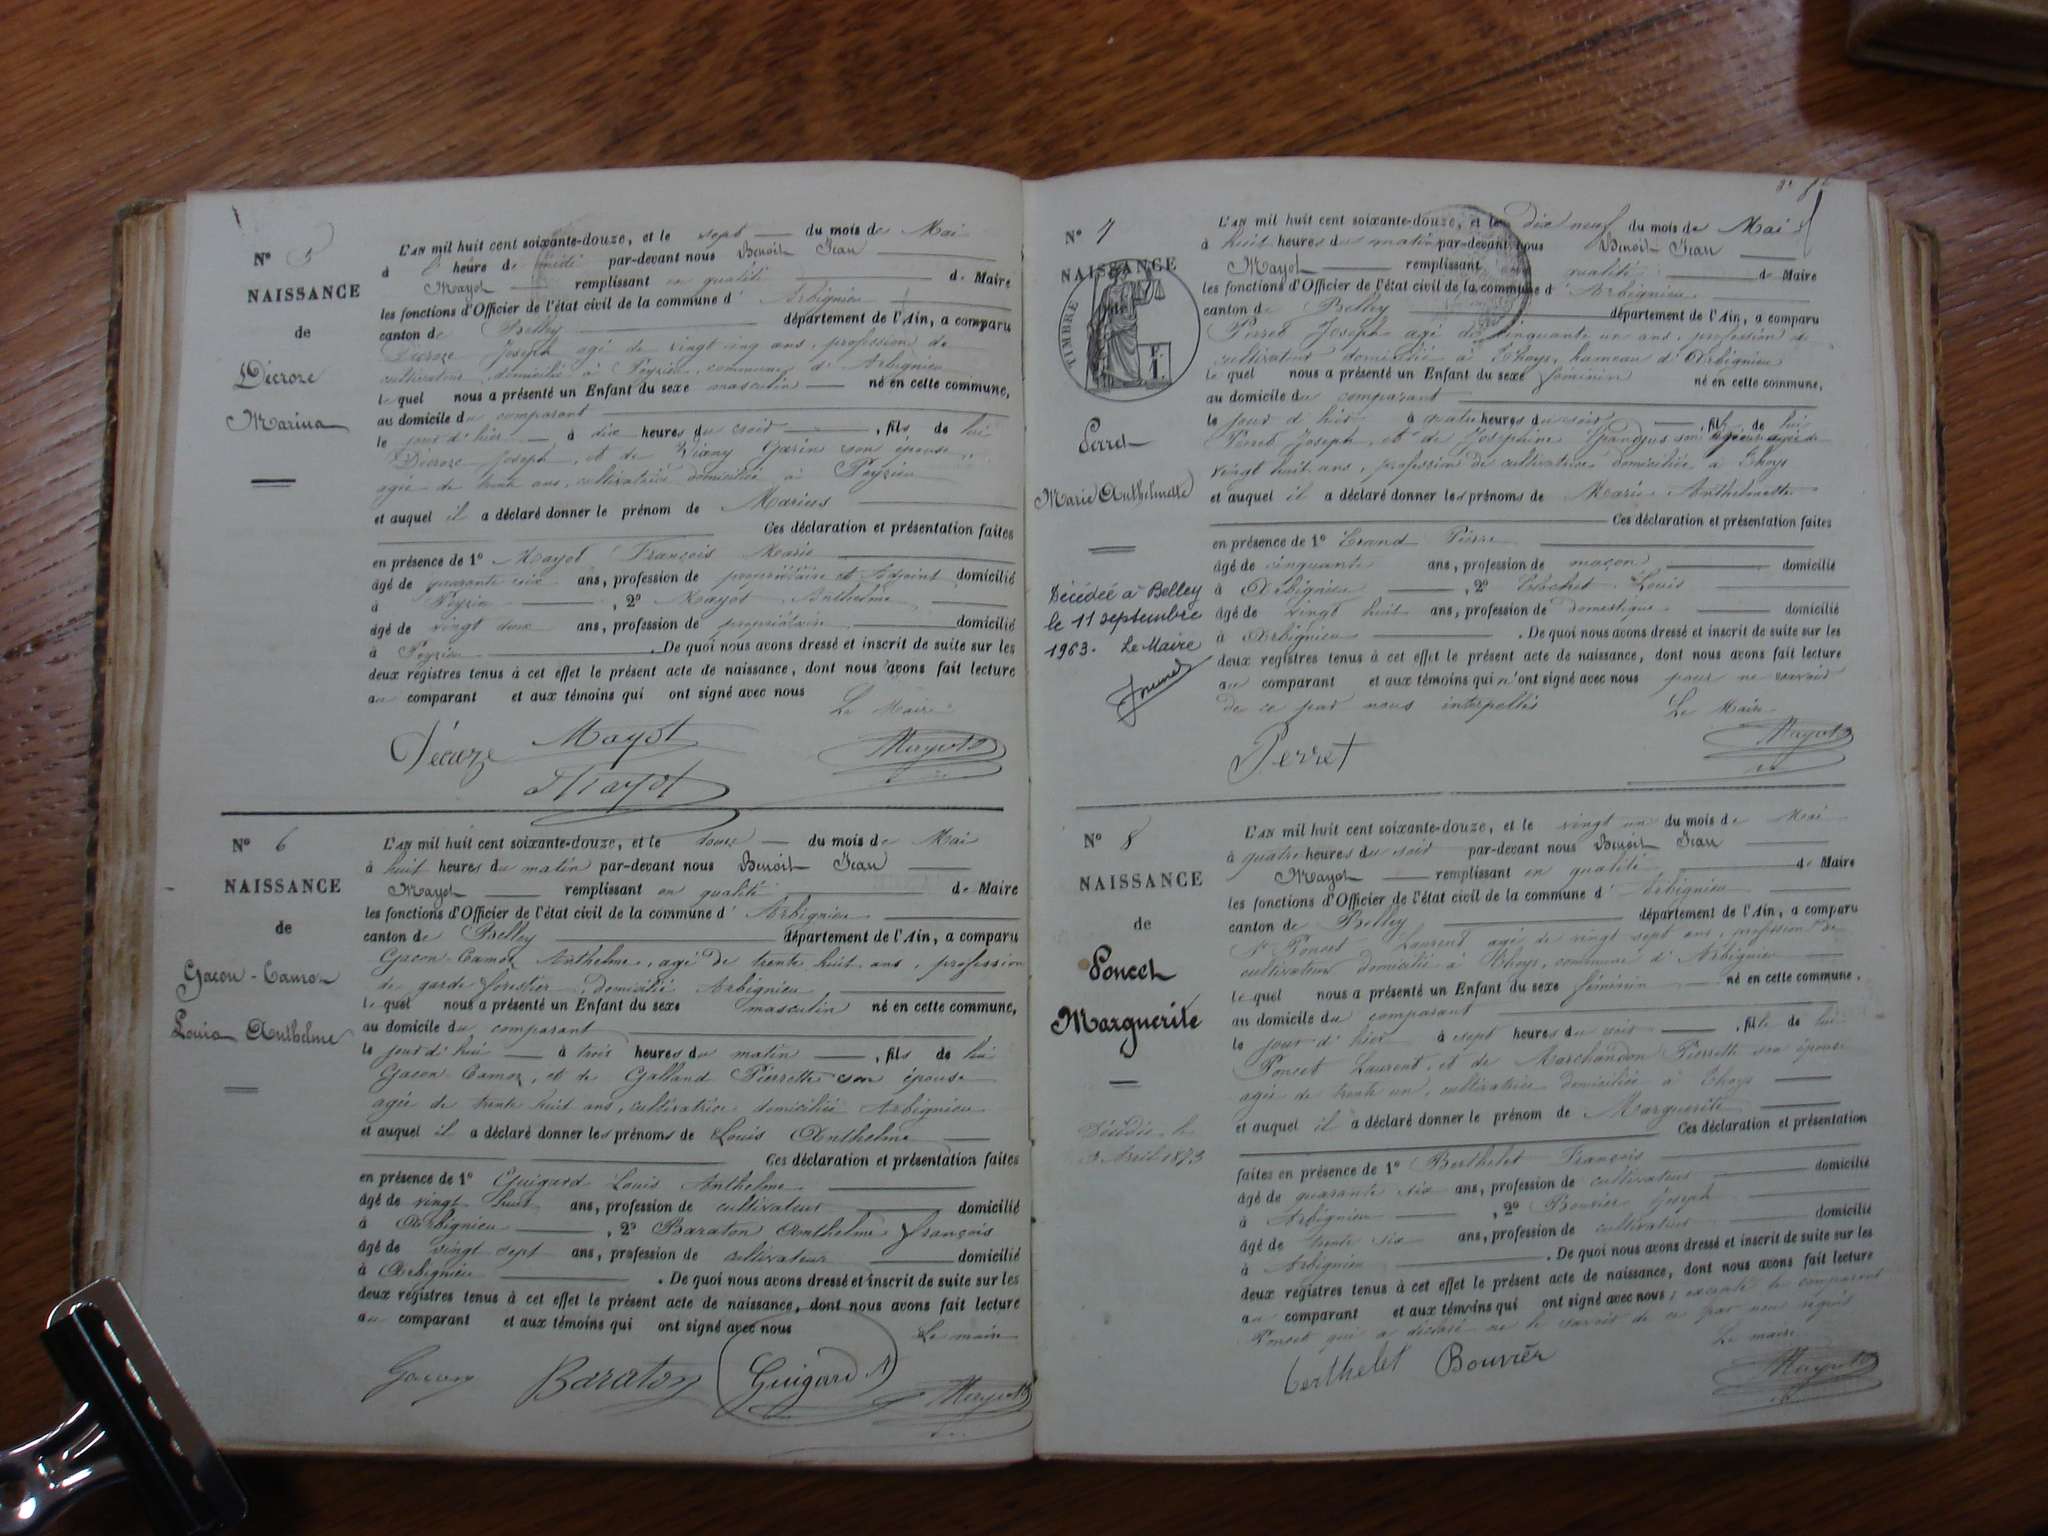 N° 5
NAISSANCE
de
Décroze
Marius
L'AN mil huit cent soixante-douze, et le sept du mois de Mai
à heure de midi par-devant nous Benoit Jean
Mayot remplissant en qualité de Maire
les fonctions d'Officier de l'état civil de la commune d' Arbignieu
canton de Belley département de l'Ain, a comparu
Décroze Joseph agé de vingt cinq ans, profession de
cultivateur domicilié à Peyzieu, commune d'Arbignieu
lequel nous a présenté un Enfant du sexe masculin né en cette commune,
au domicile du comparant
le jour d'hier à dix heures du soir, fils de lui
Décroze Joseph, et de Garin son épouse,
agée de trente ans, cultivatrice domiciliée à Peyzieu
et auquel il a déclaré donner le prénom de Marius
Ces déclaration et présentation faites
en présence de 1° Mayot François Marie
âgé de quarante six ans, profession de propriétaire et Adjoint domicilié
à Peyzieu, 2° Mayot Anthelme
âgé de vingt deux ans, profession de propriétaire domicilié
à Peyzieu. De quoi nous avons dressé et inscrit de suite sur les
deux registres tenus à cet effet le présent acte de naissance, dont nous avons fait lecture
au comparant et aux témoins qui ont signé avec nous
Le Maire
Décroze Mayot Mayot
Mayot
N° 6
NAISSANCE
de
Gacon-Camoz
Louis Anthelme
L'AN mil huit cent soixante-douze, et le douze du mois de Mai
à huit heures du matin par-devant nous Benoit Jean
Mayot remplissant en qualité de Maire
les fonctions d'Officier de l'état civil de la commune d' Arbignieu
canton de Belley département de l'Ain, a comparu
Gacon-Camoz Anthelme, agé de trente huit ans, profession
de garde forestier, domicilié Arbignieu
lequel nous a présenté un Enfant du sexe masculin né en cette commune,
au domicile du comparant
le jour d'hui à trois heures du matin, fils de lui
Gacon Camoz, et de Galland Pierrette son épouse
agée de trente huit ans, cultivatrice domiciliée Arbignieu
et auquel il a déclaré donner les prénoms de Louis Anthelme
Ces déclaration et présentation faites
en présence de 1° Guigard Louis Anthelme
âgé de vingt huit ans, profession de cultivateur domicilié
à Arbignieu, 2° Baraton Anthelme François
âgé de vingt sept ans, profession de cultivateur domicilié
à Arbignieu. De quoi nous avons dressé et inscrit de suite sur les
deux registres tenus à cet effet le présent acte de naissance, dont nous avons fait lecture
au comparant et aux témoins qui ont signé avec nous
Le maire
Gacon Baraton Guigard A Mayot
N° 7
NAISSANCE
TIMBRE
Perret
Marie Anthelmette
Décédée à Belley
le 11 septembre
1963. Le Maire
L'AN mil huit cent soixante-douze, et le dix neuf du mois de Mai
à huit heures du matin par-devant nous Benoit Jean
Mayot remplissant en qualité de Maire
les fonctions d'Officier de l'état civil de la commune d' Arbignieu
canton de Belley département de l'Ain, a comparu
Perret Joseph agé de cinquante un ans, profession de
cultivateur domicilié à Thoys, hameau d'Arbignieu
lequel nous a présenté un Enfant du sexe féminin né en cette commune,
au domicile du comparant
le jour d'hier à quatre heures du soir, fille de lui
Perret Joseph, et de Joséphine son épouse agée de
vingt huit ans, profession de cultivatrice domiciliée à Thoys
et auquel il a déclaré donner les prénoms de Marie Anthelmette
Ces déclaration et présentation faites
en présence de 1° Pierre
âgé de cinquante ans, profession de maçon domicilié
à Arbignieu, 2° Louis
âgé de vingt huit ans, profession de domestique domicilié
à Arbignieu. De quoi nous avons dressé et inscrit de suite sur les
deux registres tenus à cet effet le présent acte de naissance, dont nous avons fait lecture
au comparant et aux témoins qui n'ont signé avec nous pour ne savoir
de ce par nous interpellés
Le Maire
Perret Mayot
N° 8
NAISSANCE
de
Poncet
Marguerite
Décédée le
3 Avril 1873
L'AN mil huit cent soixante-douze, et le vingt un du mois de Mai
à quatre heures du soir par-devant nous Benoit Jean
Mayot remplissant en qualité de Maire
les fonctions d'Officier de l'état civil de la commune d' Arbignieu
canton de Belley département de l'Ain, a comparu
Sr Poncet Laurent agé de vingt sept ans, profession de
cultivateur domicilié à Thoys, commune d'Arbignieu
lequel nous a présenté un Enfant du sexe féminin né en cette commune.
au domicile du comparant
le jour d'hier à sept heures du soir, fille de lui
Poncet Laurent, et de Marchandon Pierrette son épouse
agée de trente un, cultivatrice domiciliée à Thoys
et auquel il a déclaré donner le prénom de Marguerite
Ces déclaration et présentation
faites en présence de 1° Berthelet François
âgé de quarante six ans, profession de cultivateur domicilié
à Arbignieu, 2° Bouvier Joseph
âgé de trente six ans, profession de cultivateur domicilié
à Arbignieu. De quoi nous avons dressé et inscrit de suite sur les
deux registres tenus à cet effet le présent acte de naissance, dont nous avons fait lecture
au comparant et aux témoins qui ont signé avec nous; excepté le comparant
Poncet qui a déclaré ne le savoir de ce par nous requis
Le maire
Berthelet Bouvier Mayot